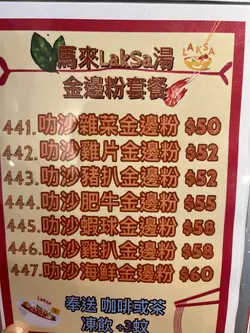 馬來LakSa湯
LAKSA
金邊粉套餐
441.叻沙雜菜金邊粉 $50
442.叻沙雞片金邊粉 $52
443.叻沙豬扒金邊粉 $52
444.叻沙肥牛金邊粉 $55
445.叻沙蝦球金邊粉 $58
446.叻沙雞扒金邊粉 $58
447.叻沙海鮮金邊粉 $60
奉送 咖啡或茶
凍飲 +3蚊
Laksa